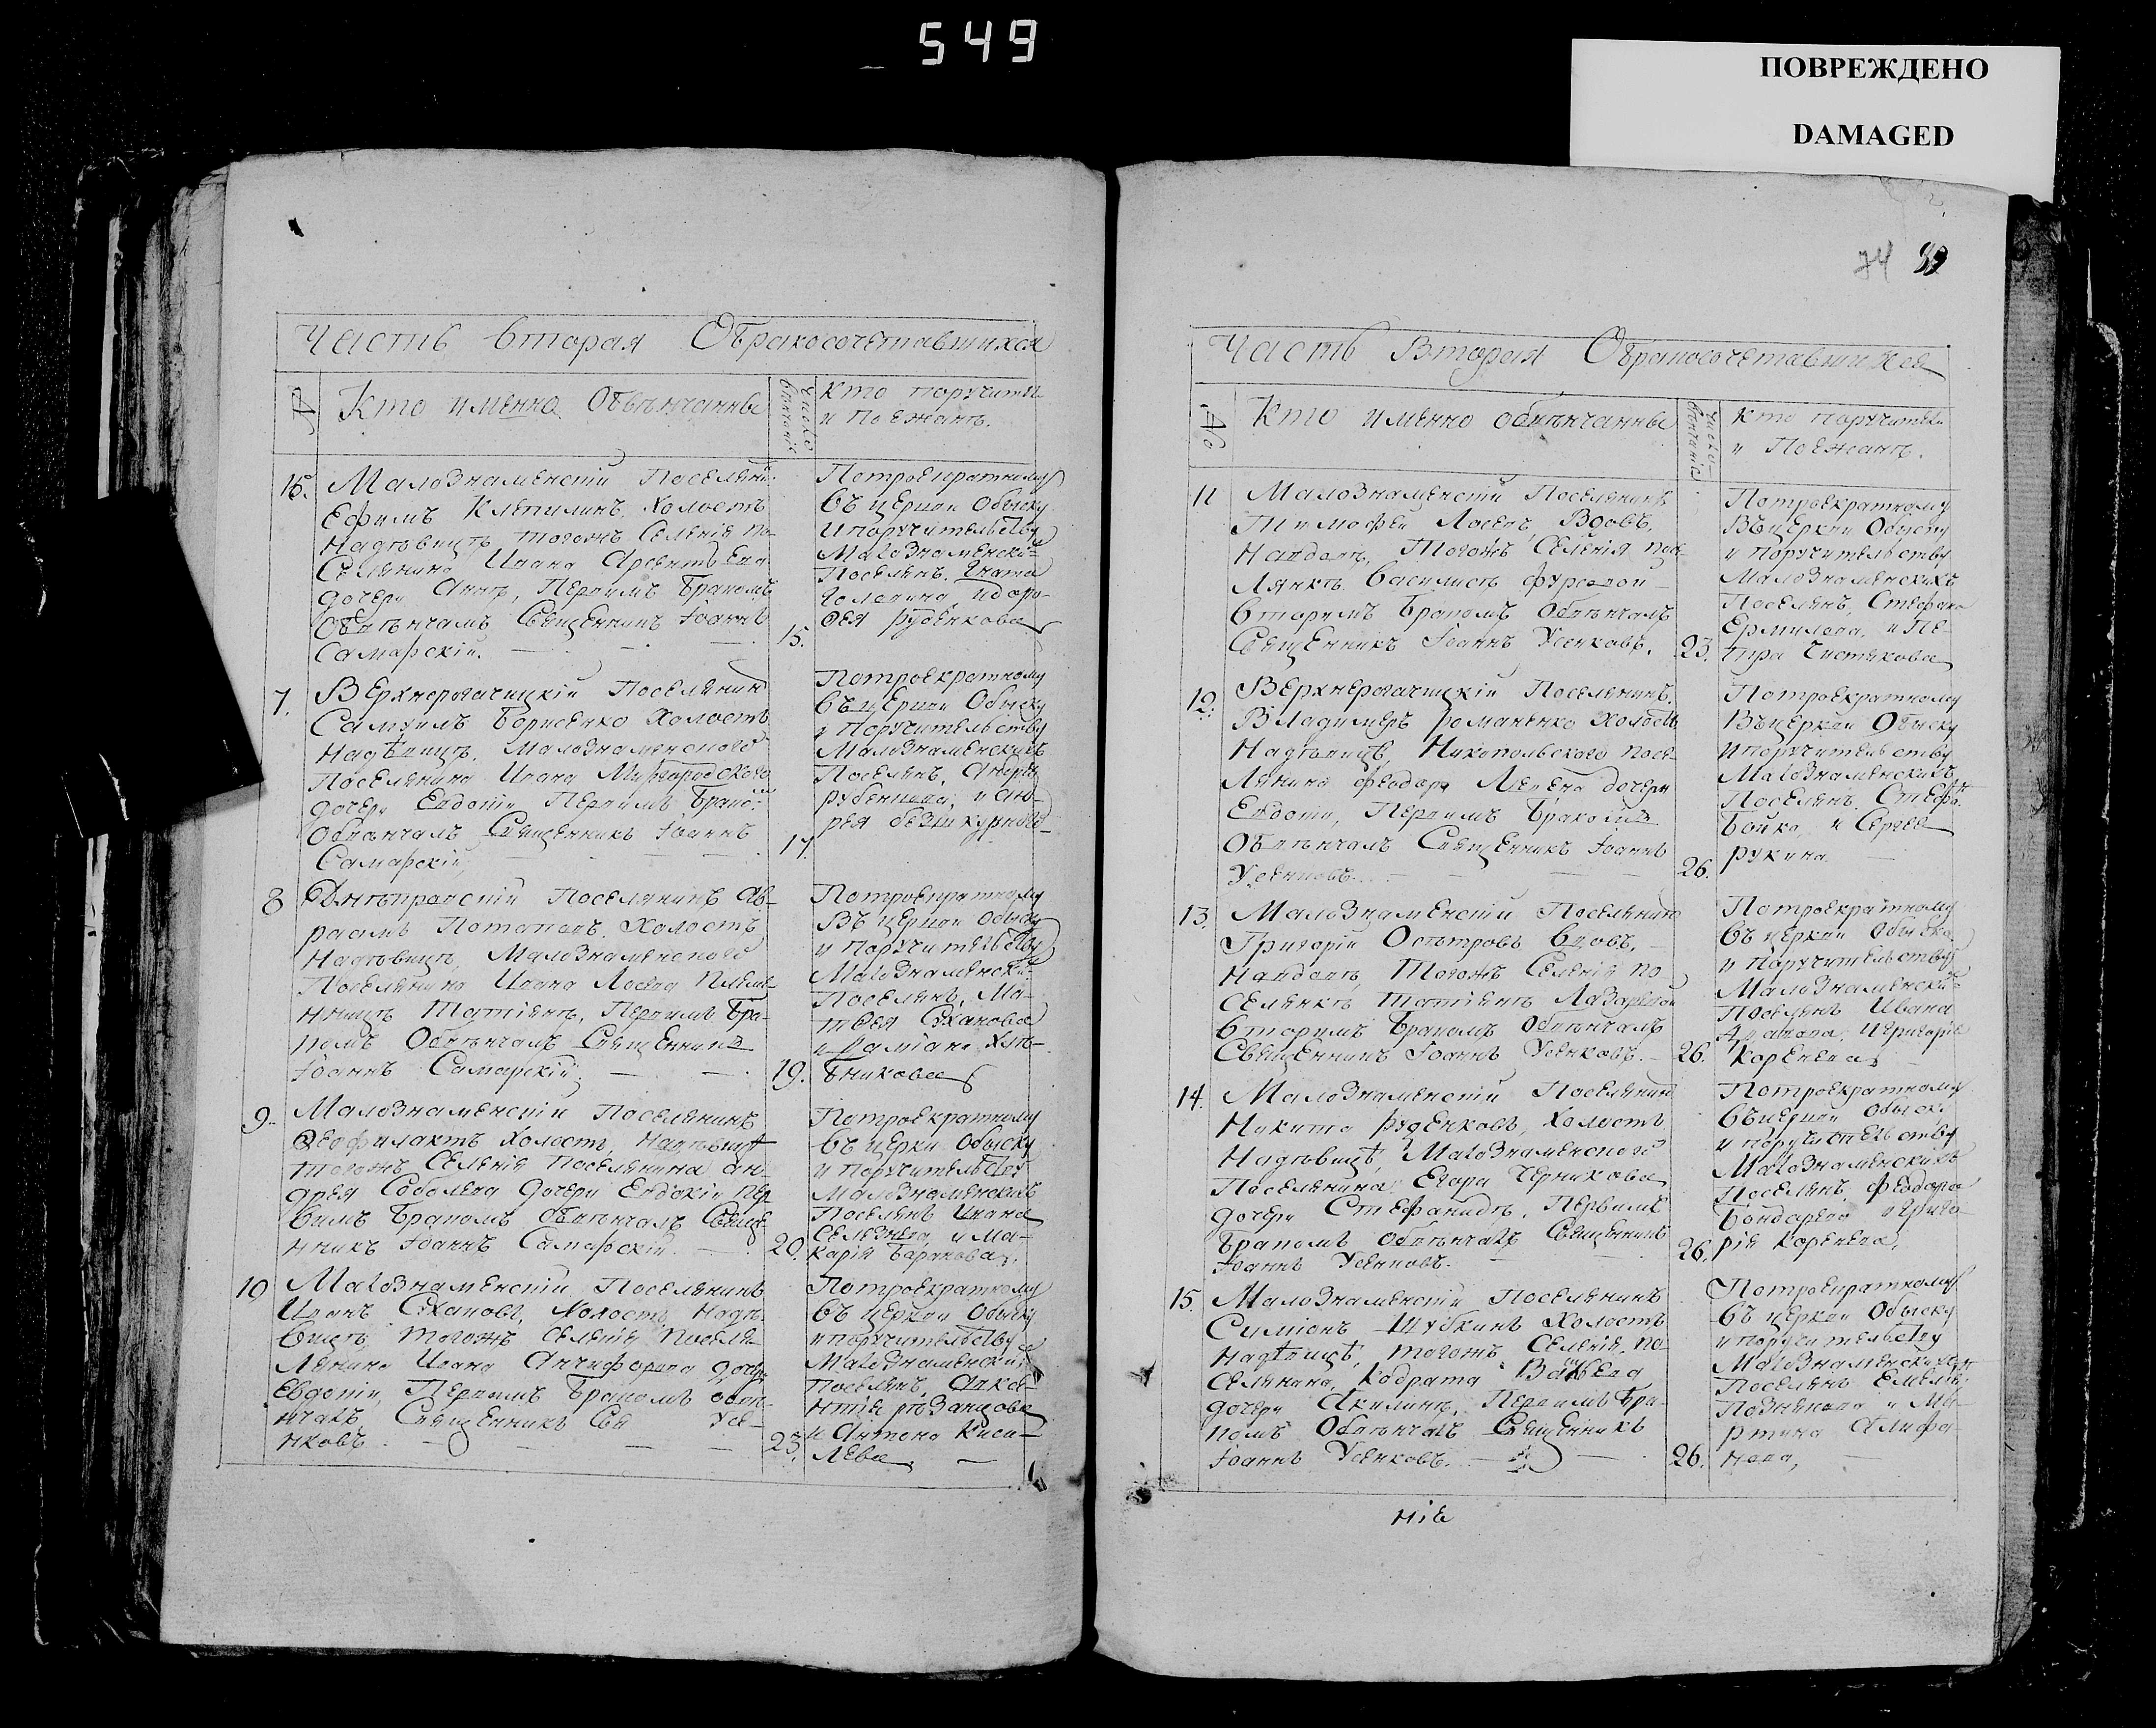 549
ПОВРЕЖДЕНО
DAMAGED
Часть вторая Обракосочетавшихся
№
Кто именно Обвѣнчанные
Число
вѣнчанія
Кто поручители
и Поежанъ.
Малознаменскій Поселянинъ
Ефимъ Клепилинъ Холостъ
Надѣвицѣ тогожъ Селенія по-
Селянина Ивана Арсентьева
дочери Аннѣ, Первимъ Бракомъ
Обвѣнчалъ Священникъ Іоаннъ
Самарскій.
15.
Потроекратному
въ церкви Обыску
и поручительству
Малознаменски-
Поселянъ. Игната
Рубенкова
7.
Верхнерогачицкій Поселянинъ
Самуилъ Борисенко Холостъ
Надѣвицѣ, Малознаменского
Поселянина Ивана Миргородского
дочери Евдокіи Первимъ Брако-
Обвѣнчалъ Священникъ Іоаннъ
Самарскій,
17.
Потроекратному
въ церкви Обыску
и Поручительству
Малознаменскихъ
Поселянъ, Андрея
8
Днепровскій Поселянинъ Ав-
раамъ Потаповъ Холостъ
Надѣвицѣ, Малознаменского
Поселянина Ивана Лосева Племя-
нницѣ Татіянѣ, Первимъ Бра-
комъ Обвѣнчалъ Священникъ
Іоаннъ Самарскій.
19.
Потроекратному
Въ церкви Обыску
и Поручительству
Малознаменски-
Поселянъ, Ма-
твея Суханова
и Даміана Хлѣ-
бникова
9.
Малознаменскій Поселянинъ
Феофилактъ Холостъ, Надѣвицѣ
тогожъ Селенія Поселянина Ан-
дрея Соболева дочери Евдокіи пер
вимъ Бракомъ обвѣнчалъ Священ
нникъ Іоаннъ Самарскій.
20.
Потроекратному
въ церкви Обыску
и Поручительству
Малознаменскихъ
Поселянъ Ивана
Селезнева, и Ма-
карія Баранова.
10
Малознаменскій Поселянинъ
Иванъ Сухановъ, Холостъ Надѣ-
вицѣ, тогожъ селенія поселя-
лянина Ивана Анчифорова дочери
Евдокіи, Первимъ Бракомъ обвѣ-
нчалъ, Священникъ Усе-
нковъ.
23.
Потроекратному
въ церкви Обыску
и поручительству
Малознаменски-
Поселянъ,
Рязанцова
и Антона Кисе-
Лева
74
Часть Вторая Обракосочетавшихся
№
Кто именно обвѣнчанные
Число
вѣнчанія
Кто поручители
и Поежанъ.
11
Малознаменскій Поселянинъ,
Тимофей Лосевъ, Вдовъ,
Навдовѣ, Тогожъ Селенія посе-
лянкѣ Василисѣ Фурсовой
вторимъ Бракомъ Обвѣнчалъ
Священникъ Іоаннъ Усенковъ.
23.
Потроекратному
Въ церкви Обыску
и поручительству
Малознаменскихъ
Поселянъ, Стефана
Ермилова, и Пе-
тра Чистякова
12.
Верхнерогачицкій Поселянинъ.
Владимеръ романенко Холостъ
Надѣвицѣ, Никопольского посе-
лянина феодора дочери
Евдокіи, Первимъ Бракомъ
Обвѣнчалъ Священникъ Іоаннъ
Усенковъ.
26.
Потроекратному
Въ церкви Обыску
и поручительству
Малознаменскихъ
Поселянъ Стефа-
Бойко, и Сергея
рукина.
13.
Малознаменскій Поселянинъ
Григорій Осѣтровъ Вдовъ,
Навдовѣ, Тогожъ Селенія по-
селянкѣ Татіянѣ Лазаревой
вторимъ Бракомъ Обвѣнчалъ
Священникъ Іоаннъ Усенковъ.
26.
Потроекратному
въ церкви Обыска
и поручительству
Малознаменски-
Поселянъ Ивана
и Григорія
Коренева
14.
Малознаменскій Поселянинъ
Никита Руденковъ, Холостъ
Надѣвицѣ, Малознаменского
Поселянина Егора Черникова
дочери Стефанидѣ, Первимъ
Бракомъ Обвѣнчалъ Священникъ
Іоаннъ Усенковъ.
26.
Потроекратному
въ церкви обыск.
и поручительству
Малознаменскихъ
Поселянъ, Феодора
Бондарева и Григо-
рія Коренева,
15.
Малознаменскій Поселянинъ
Симіонъ Шубкинъ Холостъ
Надѣвицѣ, тогожъ Селенія, по-
селянина, Кодрата
дочери Акилинѣ, Первимъ Бра-
комъ Обвѣнчалъ Священникъ
Іоаннъ Усенковъ.
26.
Потроекратному
въ церкви Обыску
и поручительству
Малознаменскихъ
Поселянъ Емель-
Познякова и Ма-
ртина Алифа-
нова,
ніе